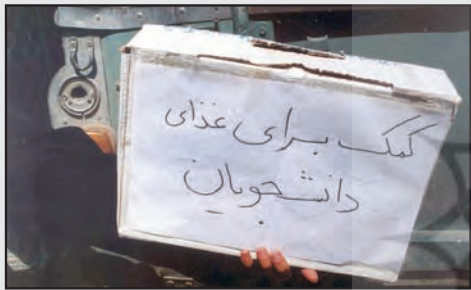 کمک برای غذای
دانشجویان